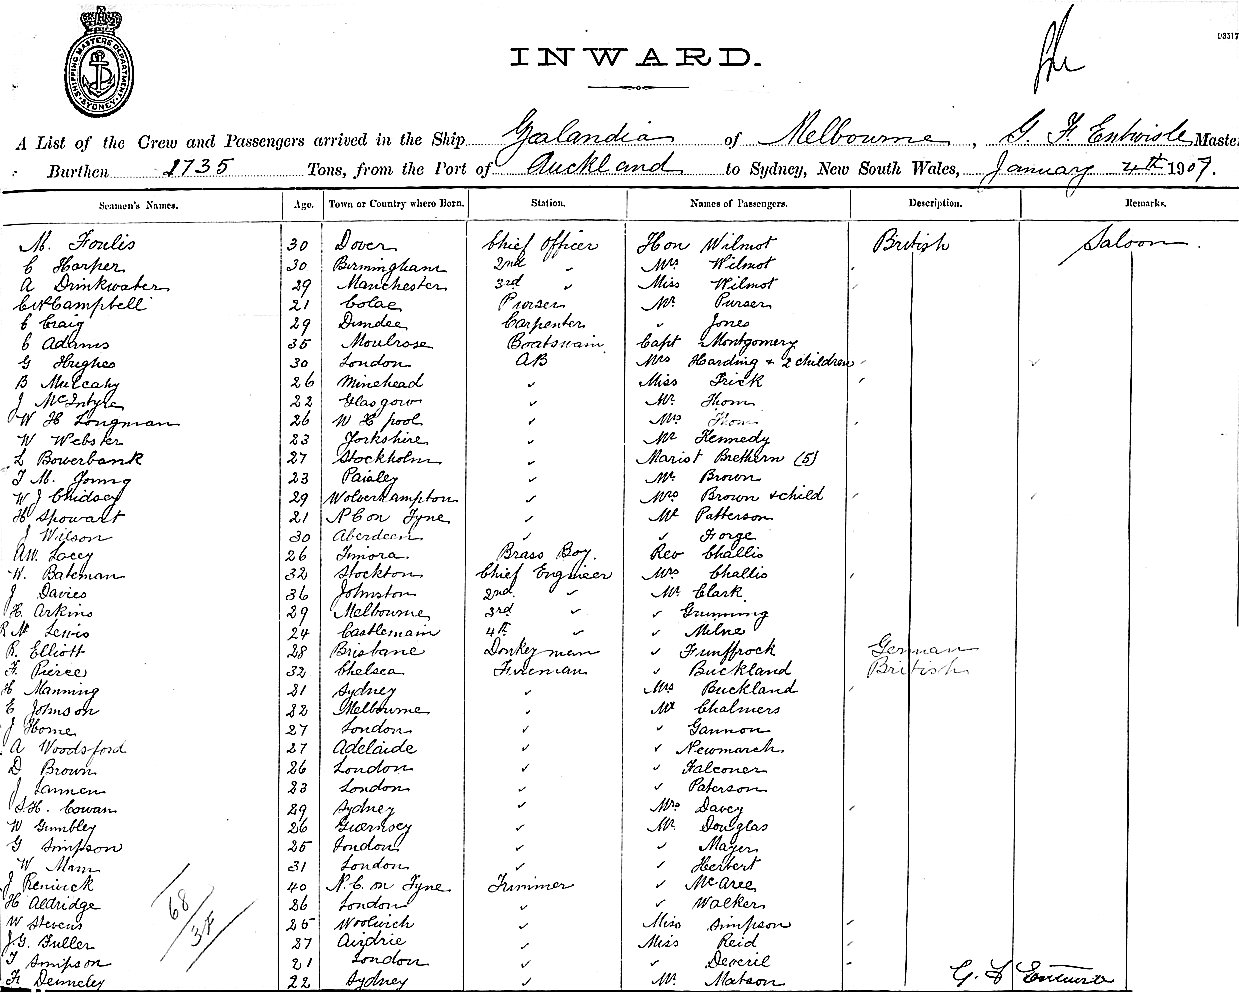 SHIPPING MASTERS DEPARTMENT SYDNEY
INWARD.
A List of the Crew and Passengers arrived in the Ship Zealandia of Melbourne, G. F. Entwisle Master
Burthen 2735 Tons, from the Port of Auckland to Sydney, New South Wales, January 4th 1907.
Seamen's Names. Age. Town or Country where Born. Station. Names of Passengers. Description. Remarks.
M. Foulis 30 Dover Chief Officer Hon Wilmot British Saloon.
C Harper 30 Birmingham 2nd " Mrs Wilmot
A Drinkwater 29 Manchester 3rd " Miss Wilmot
Campbell 21 Colac Purser Mr Purser
C Craig 29 Dundee Carpenter " Jones
C Adams 35 Moulrose Boatswain Capt Montgomery
G Hughes 30 London AB Mrs Harding + 2 children
B Mulcahy 26 Minehead ✓ Miss Frick
J McIntyre 22 Glasgow ✓ Mr Thom
W H Longman 26 W H pool ✓ Mrs Thom
W Webster 23 Yorkshire ✓ Mr Kennedy
L Bowerbank 27 Stockholm ✓ Marist Brethern (5)
T M. Young 23 Paisley ✓ Mr Brown
W J Chidsey 29 Wolverhampton ✓ Mrs Brown + child
H Spowart 21 N C on Tyne ✓ Mr Patterson
J Wilson 30 Aberdeen ✓ ✓ Forge
AW. Lacey 26 Timora. Brass Boy. Rev Challis
W. Bateman 32 Stockton Chief Engineer Mrs Challis
J Davies 36 Johnston 2nd " Mr Clark
H. Arkins 29 Melbourne 3rd " " Gunning
R M Lewis 24 Castlemain 4th " " Milne
R. Elliott 28 Brisbane Donkeyman " Funffrock German
F. Pierce 32 Chelsea Fireman " Buckland British
H Manning 21 Sydney ✓ Mrs Buckland
E Johnson 22 Melbourne ✓ Mr Chalmers
J Home 27 London ✓ ✓ Gannon
A Woodsford 27 Adelaide ✓ ✓ Newmarch
D Brown 26 London ✓ ✓ Falconer
J Lannen 23 London ✓ ✓ Paterson
S.H. Cowan 29 Sydney ✓ Mrs Davey
W Gumbley 26 Guernsey ✓ Mr Douglas
G Simpson 25 London ✓ ✓ Mayer
W Mann 31 London ✓ ✓ Herbert
J Renwick 40 N.C. on Tyne Trimmer ✓ McAree
H Aldridge 26 London ✓ ✓ Walker
W Stevens 25 Woolwich ✓ Miss Simpson
J G. Fuller 27 Airdrie ✓ Miss Reid
T Simpson 21 London ✓ ✓ Deveril
F. Denneley 22 Sydney ✓ Mr Matson
G. F Entwisle
68